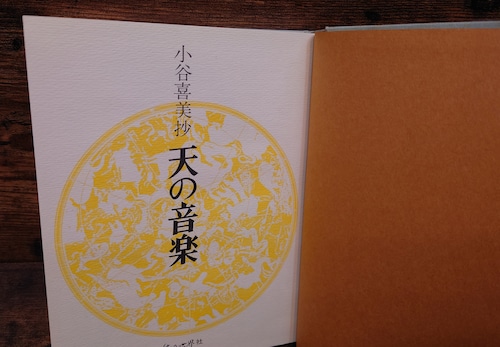 小谷喜美抄
天の音楽